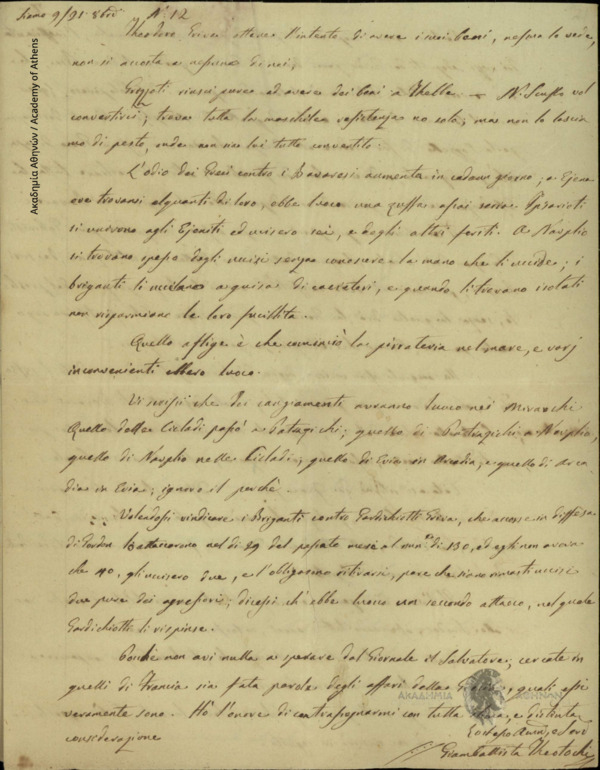 9/21 8bre N° 12
Theodoro ottenne l'intento di avere i suoi beni, nessuno lo vede,
non si accosta a nessuno di noi,
riuscì pure ad avere dei beni a N.
convertirci, trova tutta la maschilea resistenza no solo, mas non lo lascia
mo di pesto, onde non sia lui tutto convertito.
L'odio dei Greci contro i Bavaresi aumenta in cadaun giorno; a Ejena
ove trovansi alquanti di loro, ebbe luoco una zuffa assai seria. Ipsarioti
si unirono agli Ejeniti ed uccisero sei, e degli altri feriti. A Nauplio
si trovano spesso degli uccisi senza conoscere la mano che li uccide; i
briganti li uccidono a guisa di cacciatori, e quando li trovano isolati
non risparmiano la loro fucillita.
Quello aflige è che cominciò la pirrateria nel mare, e varj
inconvenienti ebbero luoco.
Vi scrissi che dei cangiamenti avranno luoco nei Nomarchi
Quello delle Cicladi passò a Patrazichi; quello di Patrazichi a Nauplio,
quello di Nauplio nelle Cicladi; quello di Evia in Arcadia, e quello di Arca
dia in Evia; ignoro il perchè
Volendosi vindicare i Briganti contro Gardichiotti Griva, che accorse in diffesa
di Gordon l'attaccarono nel dì 29 del passato mese al nu.ro di 130, ed egli non aveva
che 40, gli uccisero due, e l'obligarono ritirarsi, pare che siano rimasti uccisi
due pure dei agressori; dicesi ch'ebbe luoco un secondo attacco, nel quale
Gardichiotti li rispinse.
Poichè non avi nulla a sperare dal Giornale il Salvatore; cercate in
quelli di Francia sia fata parola degli affari della Grecia, quali essi
veramente sono. Hò l'onore di contrasegnarmi con tutta stima, e distinta
considerazione
Giambattista Theotochi
Ακαδημία Αθηνών / Academy of Athens
ΑΚΑΔΗΜΙΑ ΑΘΗΝΩΝ